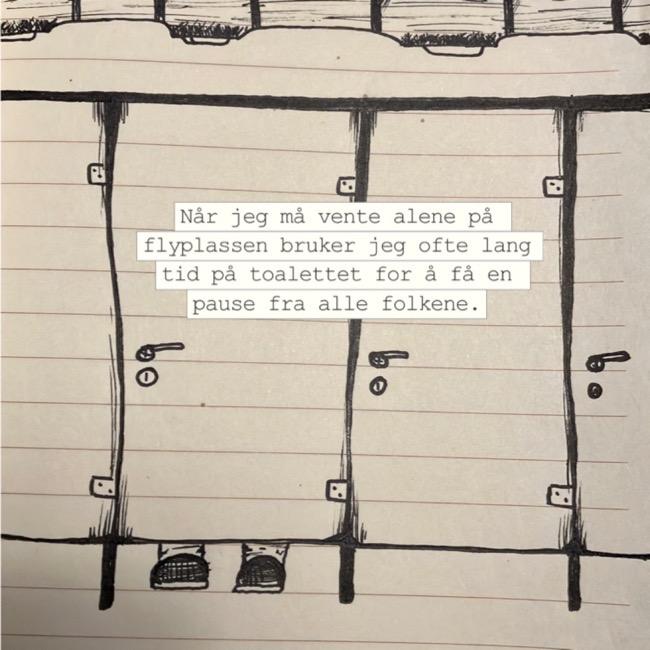 Når jeg må vente alene på
flyplassen bruker jeg ofte lang
tid på toalettet for å få en
pause fra alle folkene.